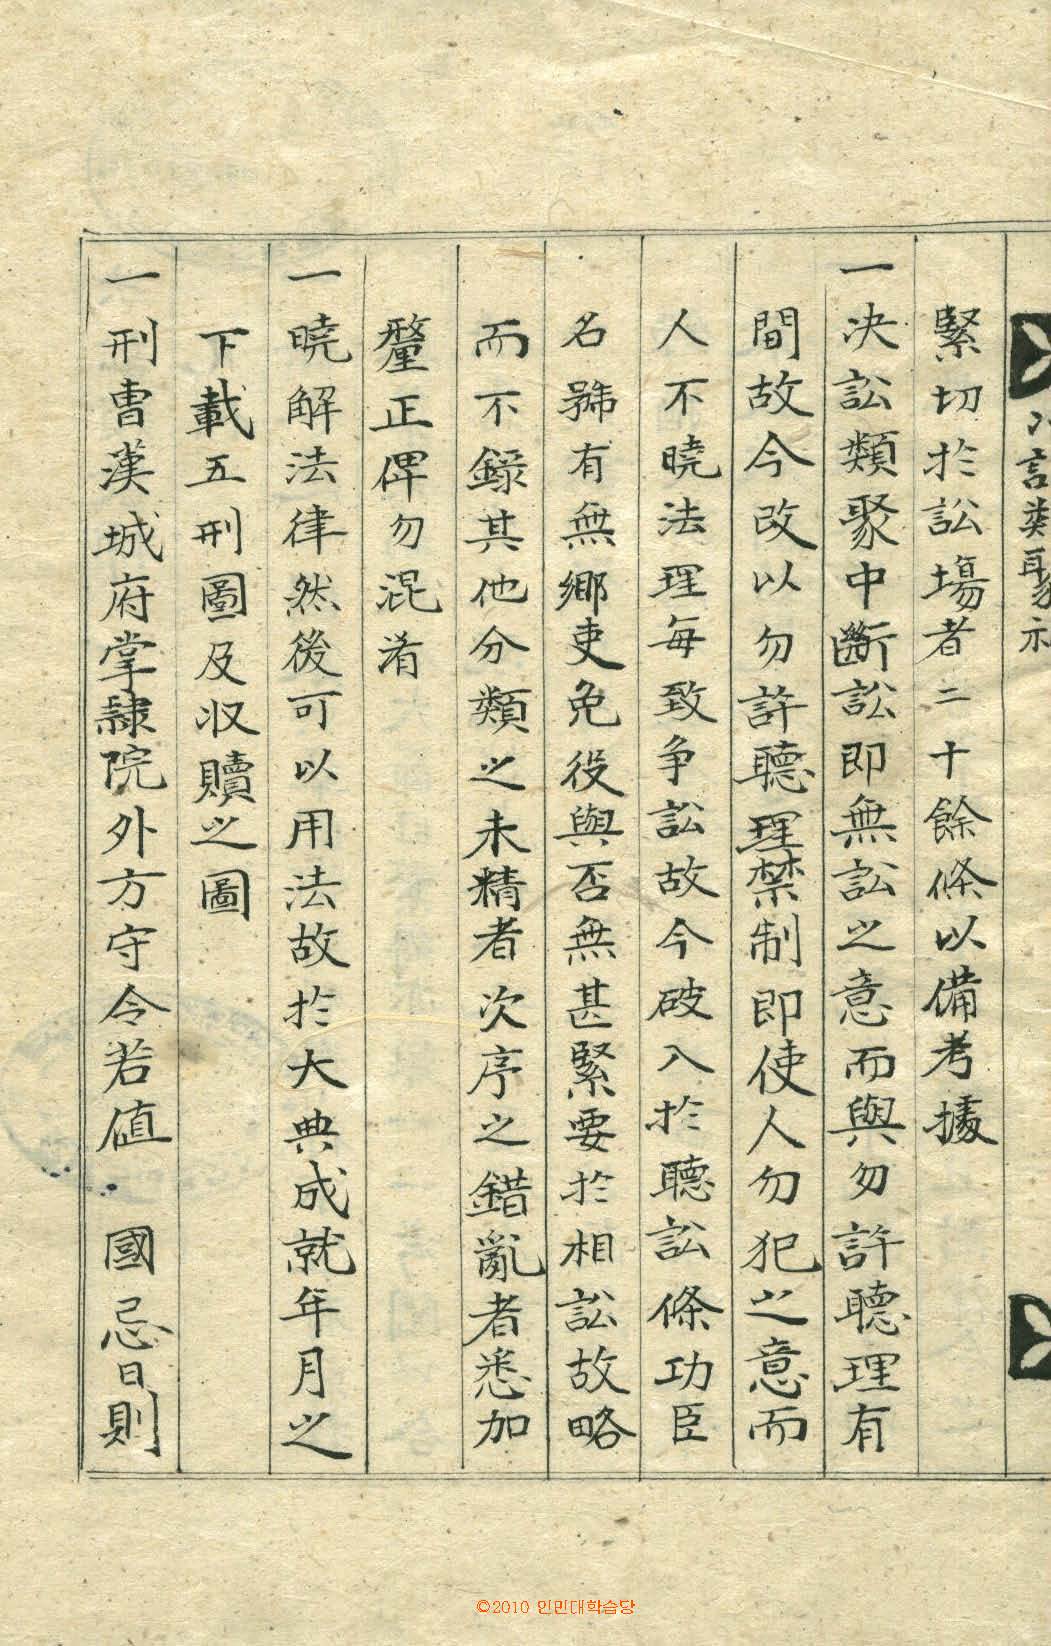 緊切於訟場者二十餘條以備考據
一决訟類聚中斷訟即無訟之意而與勿許聽理有
間故今改以勿許聽理禁制即使人勿犯之意而
人不曉法理每致争訟故今破入於聽訟條功臣
名號有無鄕吏免役與否無甚緊要於相訟故略
而不錄其他分類之未精者次序之錯亂者悉加
釐正俾勿混淆
一曉解法律然後可以用法故於大典成就年月之
下載五刑圖及収贖之圖
一刑曹漢城府掌隸院外方守令若值 國忌日則
©2010 인민대학습당